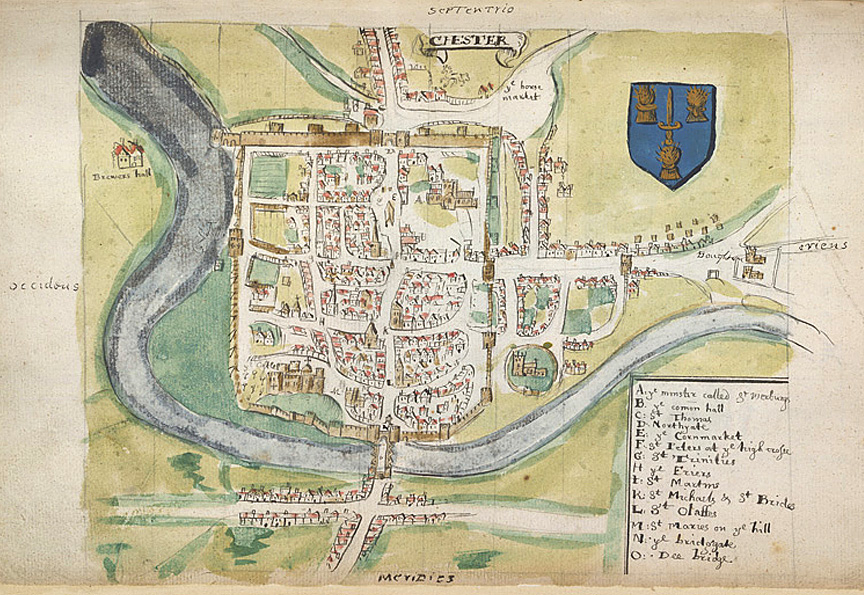 SEPTENTRIO
CHESTER
ye horse
market
Brewers hall
D
E
A
occidens
oriens
Bough
A. ye minster called St werburgs
B. ye comon hall
C: St Thomas
D. Northgate
E. ye Cornmarket
F. St Peters at ye high crosse
G. St Trinities
H ye Friers
I: St Martins
K: St Michaels & St Brides
L: St Olaffes
M: St Maries on ye hill
N: ye bridgegate
O: Dee bridge
MERIDIES